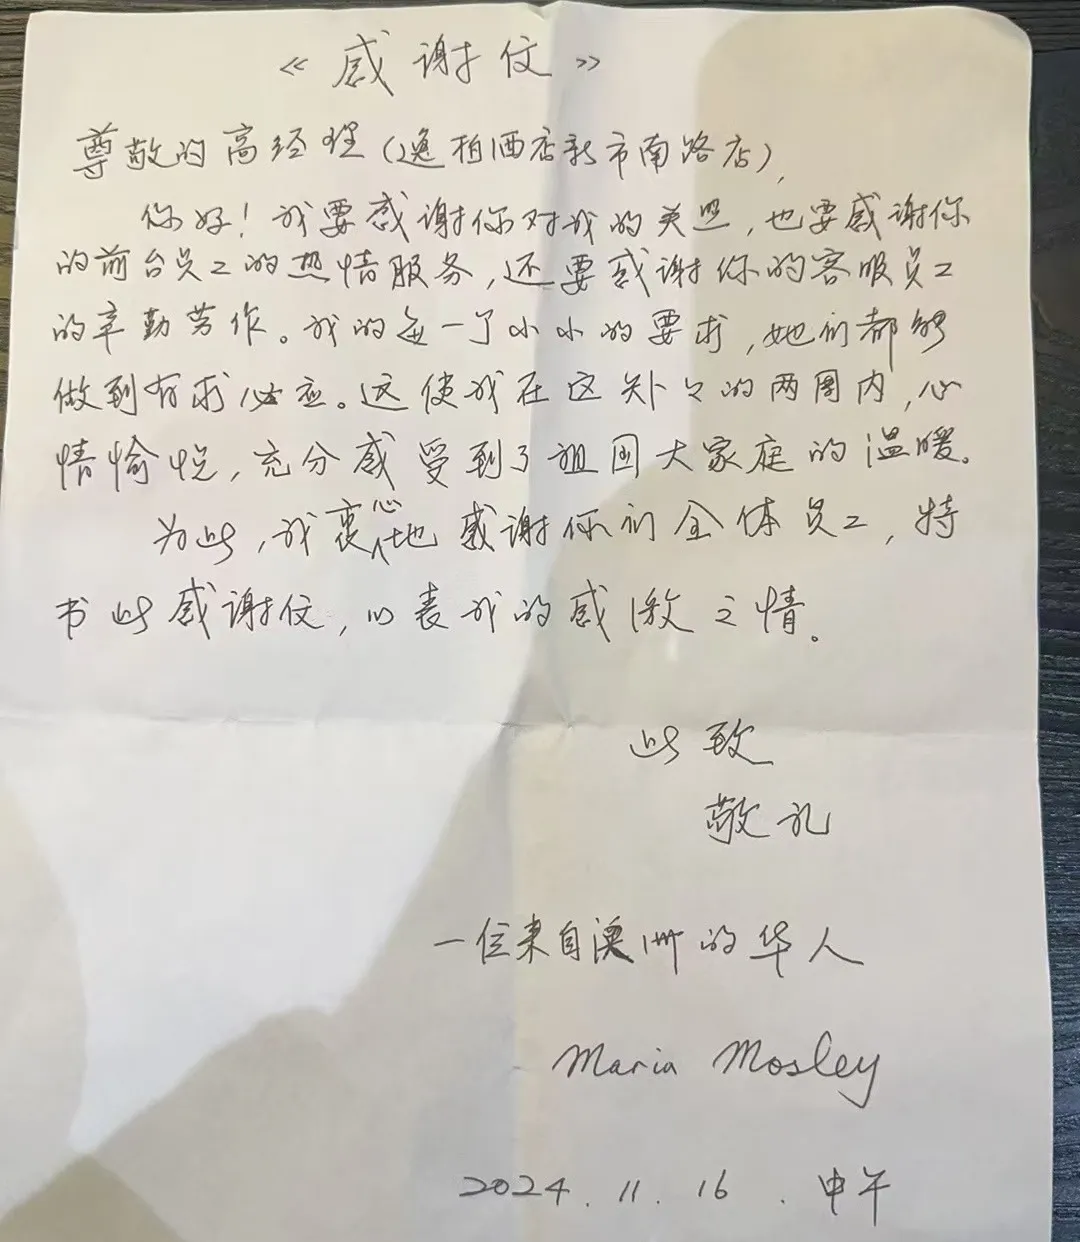 《感谢信》
尊敬的高经理(逸柏酒店新市南路店),
你好!我要感谢你对我的关照,也要感谢你
的前台员工的热情服务,还要感谢你的客服员工
的辛勤劳作。我的每一个小小的要求,她们都能
做到有求必应。这使我在这短々的两周内,心
情愉悦,充分感受到了祖国大家庭的温暖。
为此,我衷心地感谢你们全体员工,特
书此感谢信,以表我的感激之情。
此致
敬礼
一位来自澳洲的华人
Maria Mosley
2024.11.16.中午